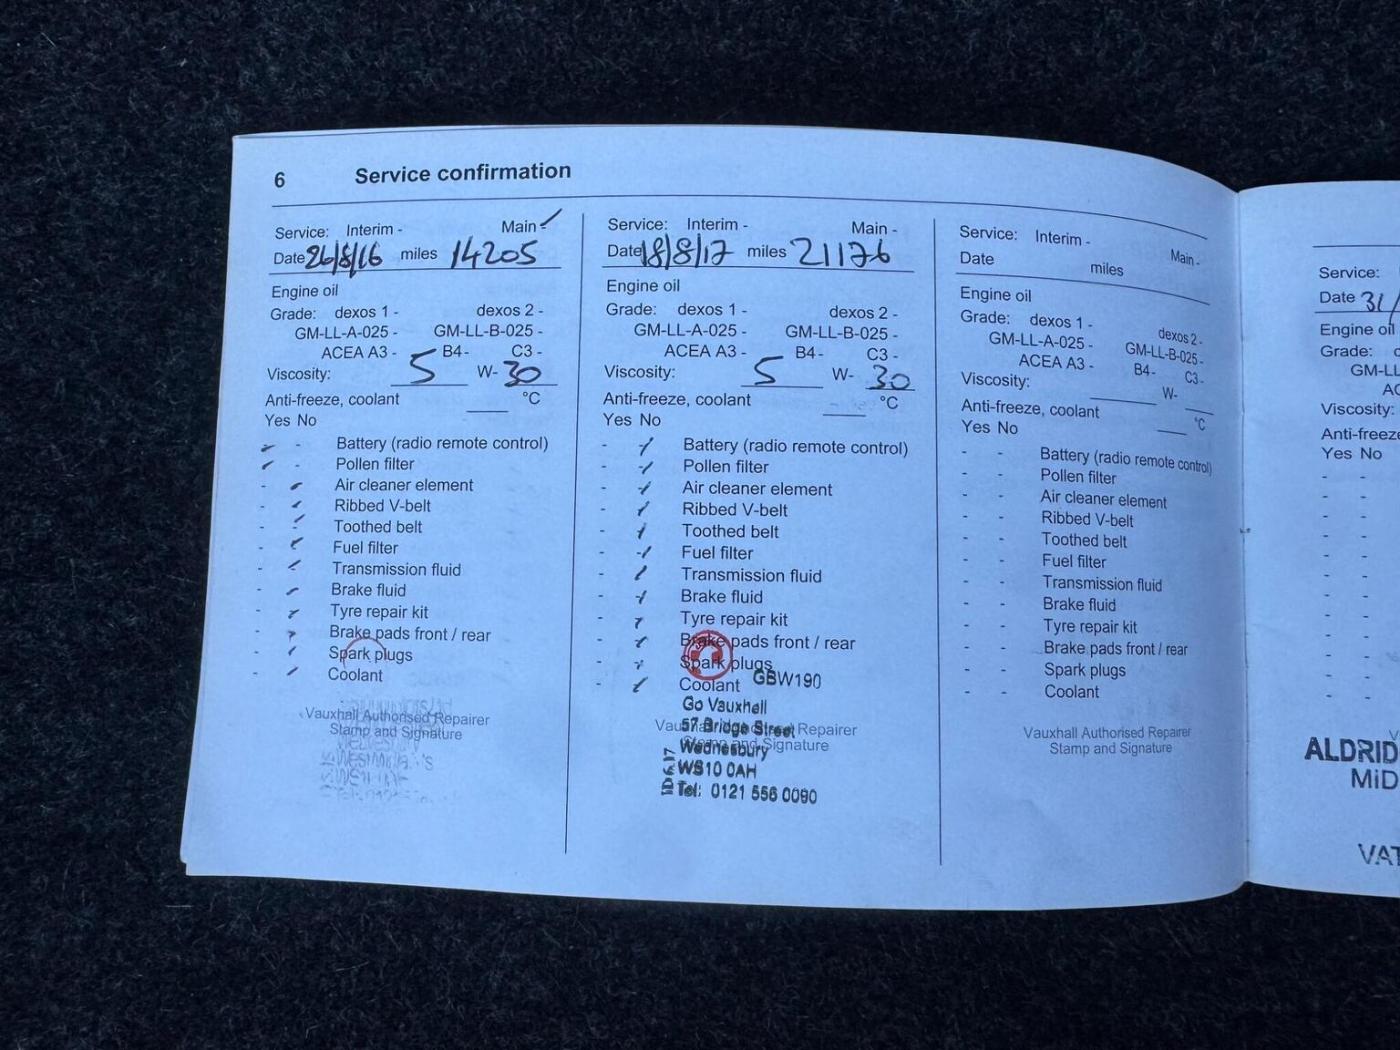 6 Service confirmation
Service: Interim - Main -
Date 26/8/16 miles 14205
Engine oil
Grade: dexos 1 - dexos 2 -
GM-LL-A-025 - GM-LL-B-025 -
ACEA A3 - B4 - C3 -
Viscosity: 5 W- 30
Anti-freeze, coolant °C
Yes No
Battery (radio remote control)
Pollen filter
Air cleaner element
Ribbed V-belt
Toothed belt
Fuel filter
Transmission fluid
Brake fluid
Tyre repair kit
Brake pads front / rear
Spark plugs
Coolant
Vauxhall Authorised Repairer
Stamp and Signature
Service: Interim - Main -
Date 18/8/17 miles 21176
Engine oil
Grade: dexos 1 - dexos 2 -
GM-LL-A-025 - GM-LL-B-025 -
ACEA A3 - B4 - C3 -
Viscosity: 5 W- 30
Anti-freeze, coolant °C
Yes No
Battery (radio remote control)
Pollen filter
Air cleaner element
Ribbed V-belt
Toothed belt
Fuel filter
Transmission fluid
Brake fluid
Tyre repair kit
Brake pads front / rear
Spark plugs
Coolant GBW190
Go Vauxhall
57 Bridge Street
Vauxhall Authorised Repairer
Stamp and Signature
Wednesbury
WS10 0AH
Tel: 0121 556 0090
Service: Interim - Main -
Date miles
Engine oil
Grade: dexos 1 - dexos 2 -
GM-LL-A-025 - GM-LL-B-025 -
ACEA A3 - B4 - C3 -
Viscosity: W-
Anti-freeze, coolant °C
Yes No
Battery (radio remote control)
Pollen filter
Air cleaner element
Ribbed V-belt
Toothed belt
Fuel filter
Transmission fluid
Brake fluid
Tyre repair kit
Brake pads front / rear
Spark plugs
Coolant
Vauxhall Authorised Repairer
Stamp and Signature
Service:
Date 31/
Engine oil
Grade:
GM-LL
AC
Viscosity:
Anti-freeze
Yes No
ALDRID
MiD
VAT